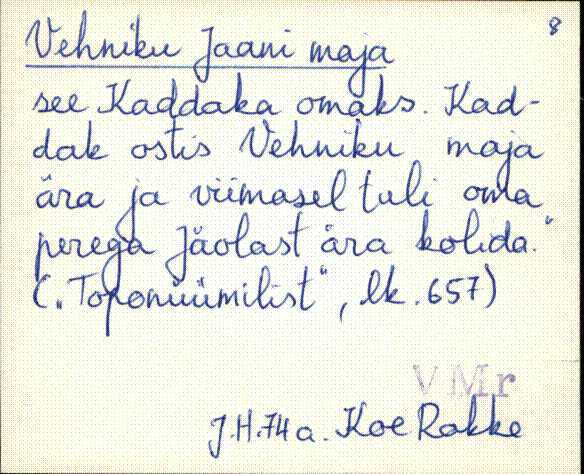 8
Vehniku Jaani maja
see Kaddaka omaks. Kad-
dak ostis Vehniku maja
ära ja viimasel tuli oma
perega Jäolast ära kolida."
("Toponüümilist", lk. 657)
VMr
J.H.74 a. Koe Rakke